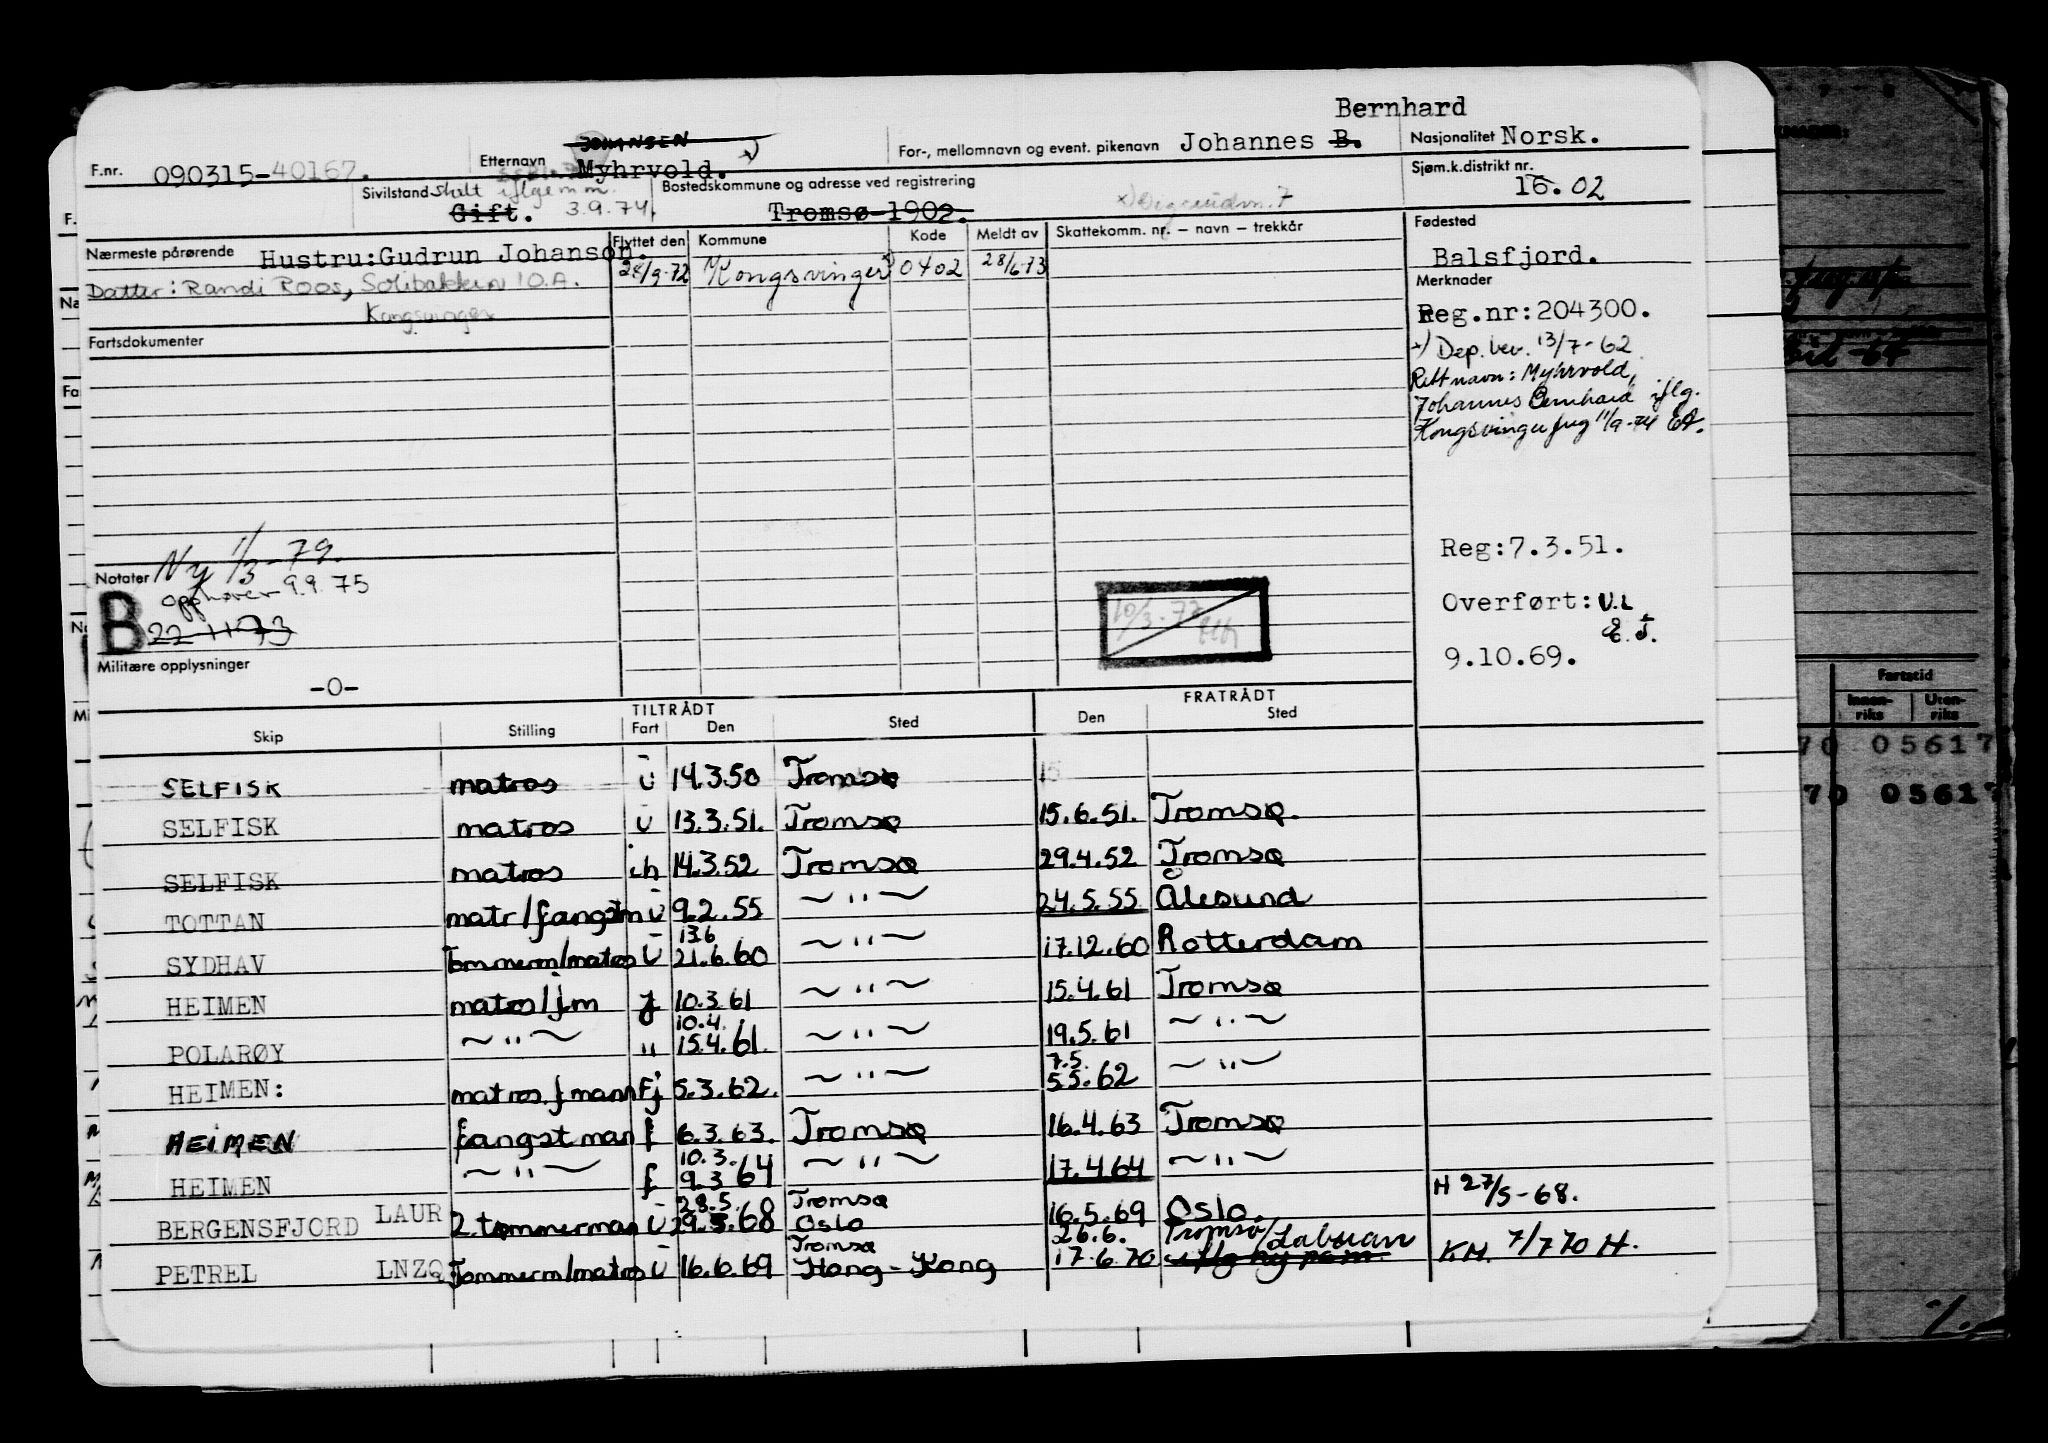 Bernhard
F.nr. 090315-40167.
Etternavn JOHANSEN Myhrvold.
For-, mellomnavn og event. pikenavn Johannes B.
Nasjonalitet Norsk.
Sivilstand Skilt iflge m.m. 3.9.74
Gift.
Bostedskommune og adresse ved registrering
Tromsø-1902.
Sjøm.k.distrikt nr.
16. 02
Nærmeste pårørende Hustru:Gudrun Johanson.
Datter: Randi Roos, Solibakken 10.A.
Kongsvinger
Flyttet den Kommune Kode Meldt av Skattekomm. nr. – navn – trekkår
28/9-72 Kongsvinger 0402 28/6-73
Fødested
Balsfjord.
Merknader
Reg.nr:204300.
x) Dep. bev. 13/7-62
Rett navn: Myhrvold,
Johannes Bernhard iflg.
Kongsvinger 11/9-74
Fartsdokumenter
Reg:7.3.51.
Overført: U.L
E.J.
9.10.69.
Notater Ny 1/3-79.
opphører 9.9.75
B 22-11-73
10/3-77
Militære opplysninger
-0-
TILTRÅDT FRATRÅDT
Skip Stilling Fart Den Sted Den Sted
SELFISK matros u 14.3.50 Tromsø 15
SELFISK matros u 13.3.51. Tromsø 15.6.51. Tromsø.
SELFISK matros ih 14.3.52 Tromsø 29.4.52 Tromsø
TOTTAN matr/fangstm u 9.2.55 —"— 24.5.55 Ålesund
13.6
SYDHAV Tømmerm/matros u 21.6.60 —"— 17.12.60 Rotterdam
HEIMEN matros/f.m f 10.3.61 —"— 15.4.61 Tromsø
10.4.
POLARØY —"— " 15.4.61. —"— 19.5.61 —"—
7.5.
HEIMEN: matros fmann Fj 5.3.62. —"— 5.5.62 —"—
HEIMEN fangstman f 6.3.63. Tromsø 16.4.63 Tromsø
10.3.
HEIMEN —"— f 9.3.64 —"— 17.4.64 —"—
28.5. Tromsø H 27/5-68.
BERGENSFJORD LAUR 2.tømmerman u 29.5.68 Oslo 16.5.69 Oslo.
Tromsø 26.6. Tromsø/Labuan
PETREL LNZQ Tømmerm/matros u 16.6.69 Hong-Kong 17.6.70 iflg ny pam. KH. 7/7 70 H.
Fartstid
Innen-riks Uten-riks
70 05617
70 05617